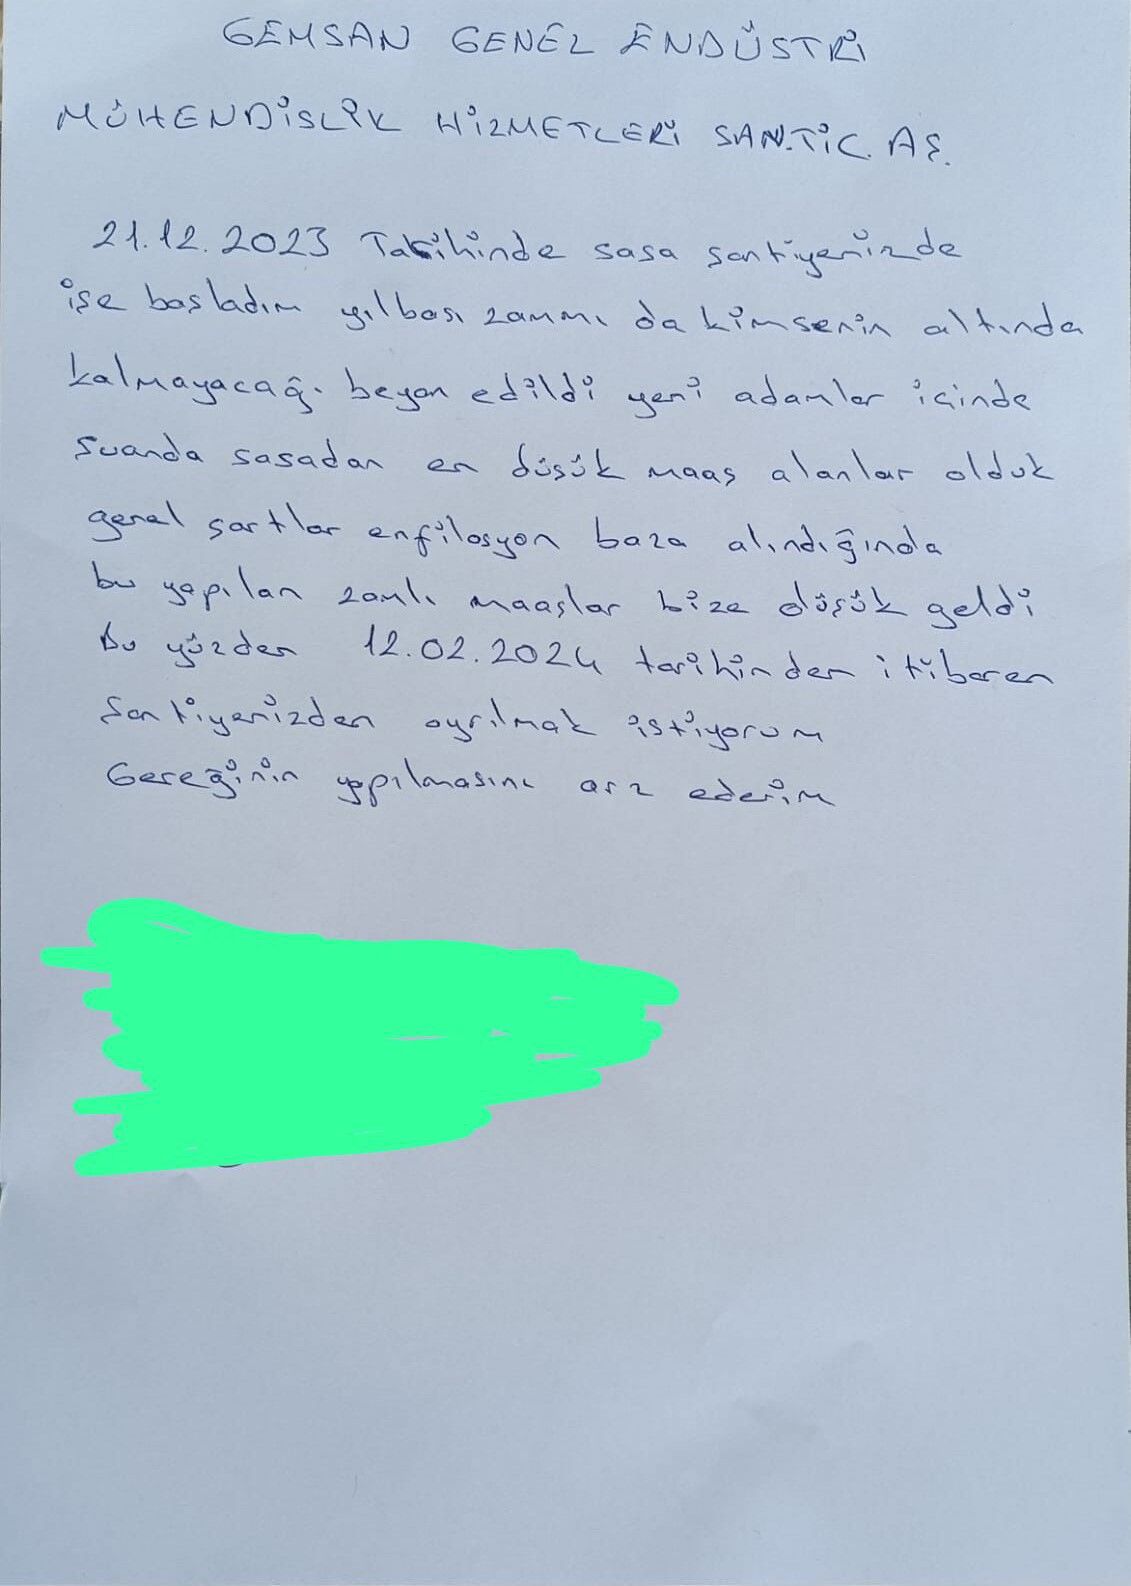 GEMSAN GENEL ENDÜSTRİ
MÜHENDİSLİK HİZMETLERİ SAN.TİC. AŞ.
21.12.2023 Tarihinde sasa şantiyenizde
işe başladım yılbası zammı da kimsenin altında
kalmayacağı beyan edildi yeni adamlar içinde
suanda sasadan en düşük maaş alanlar olduk
genel şartlar enfilosyon baza alındığında
bu yapılan zamlı maaşlar bize düşük geldi
Bu yüzden 12.02.2024 tarihinden itibaren
Şantiyenizden ayrılmak istiyorum
Gereğinin yapılmasını arz ederim